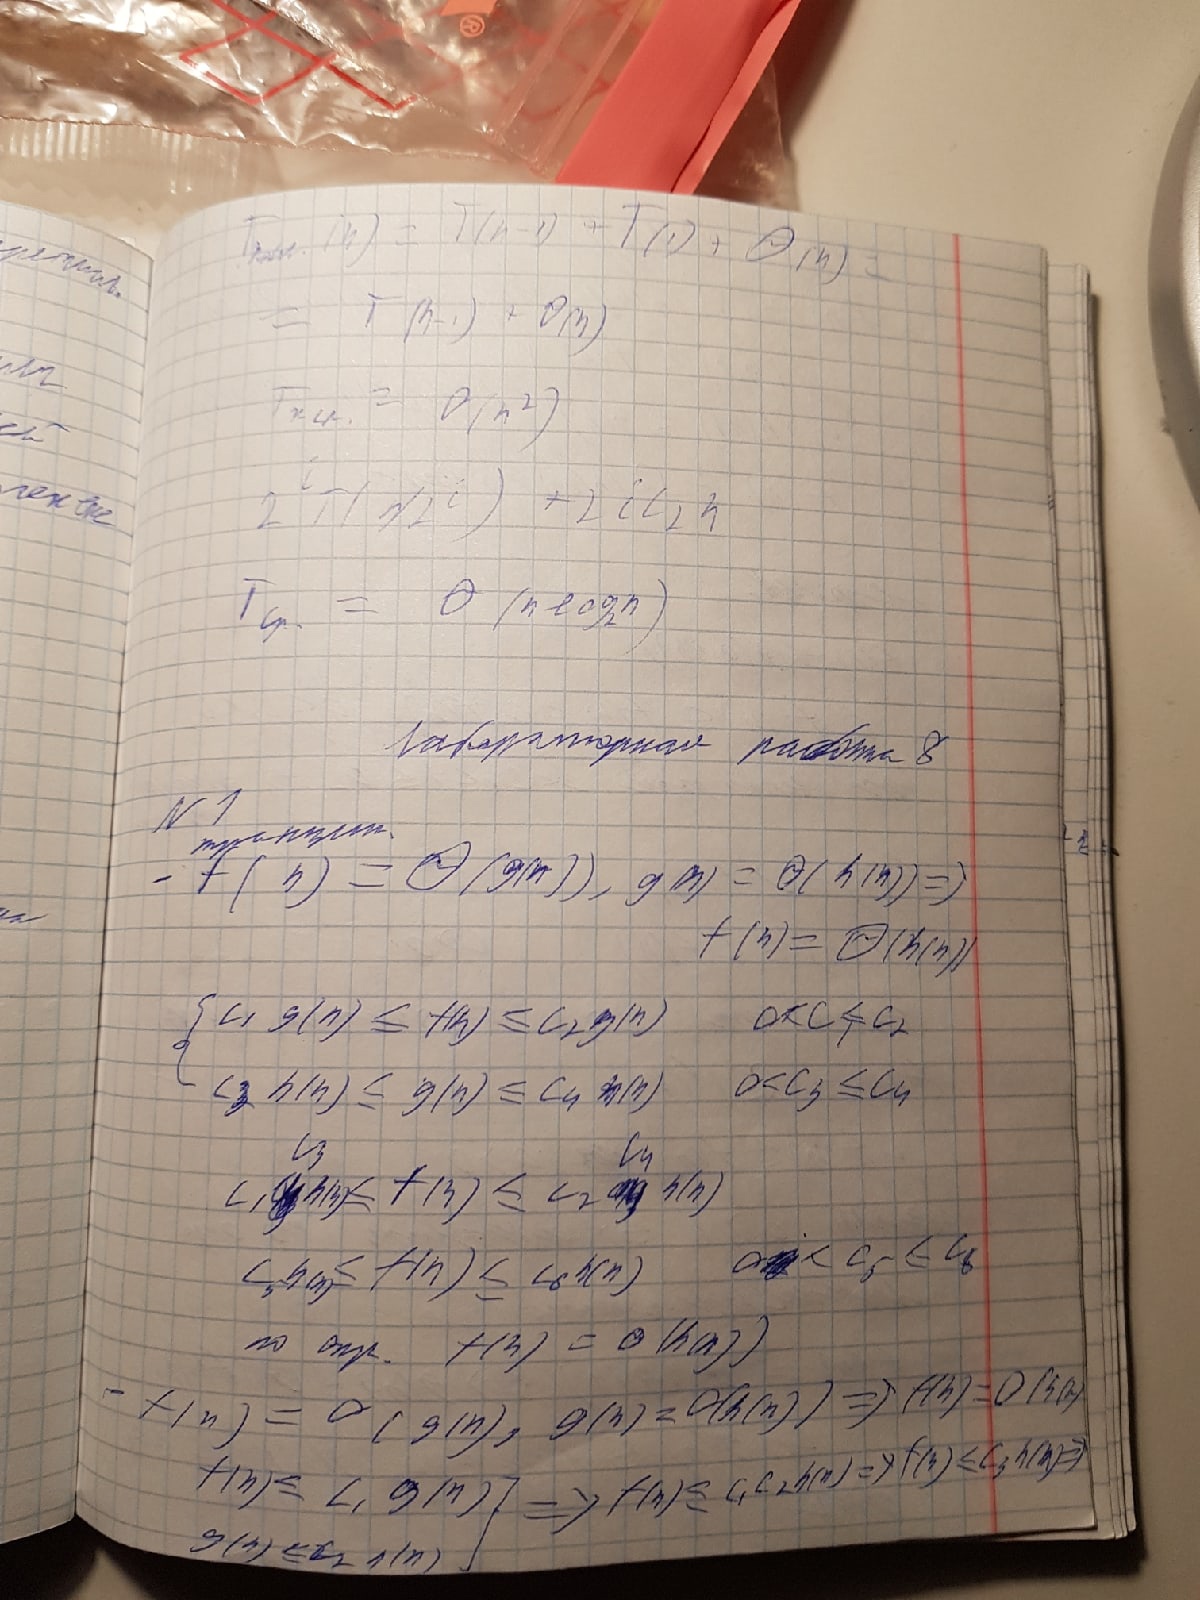 T (n) = T(n-1) + T(1) + Θ(n) =
= T(n-1) + Θ(n)
T = Θ(n²)
2^i T(n/2^i) + 2 i C₂ n
T ср. = Θ (n log₂ n)
Лабораторная работа 8
N 1
транзит.
- f(n) = Θ(g(n)), g(n) = Θ(h(n)) =>
f(n) = Θ(h(n))
{ c₁ g(n) ≤ f(n) ≤ c₂ g(n) 0 < c₁ ≤ c₂
c₃ h(n) ≤ g(n) ≤ c₄ h(n) 0 < c₃ ≤ c₄
c₃ c₄
c₁ h(n) ≤ f(n) ≤ c₂ h(n)
c₅ h(n) ≤ f(n) ≤ c₆ h(n) 0 < c₅ ≤ c₆
по опр. f(n) = Θ(h(n))
- f(n) = O(g(n)), g(n) = O(h(n)) => f(n) = O(h(n))
f(n) ≤ c₁ g(n) ] => f(n) ≤ c₁ c₂ h(n) => f(n) ≤ c₃ h(n) =>
g(n) ≤ c₂ h(n)